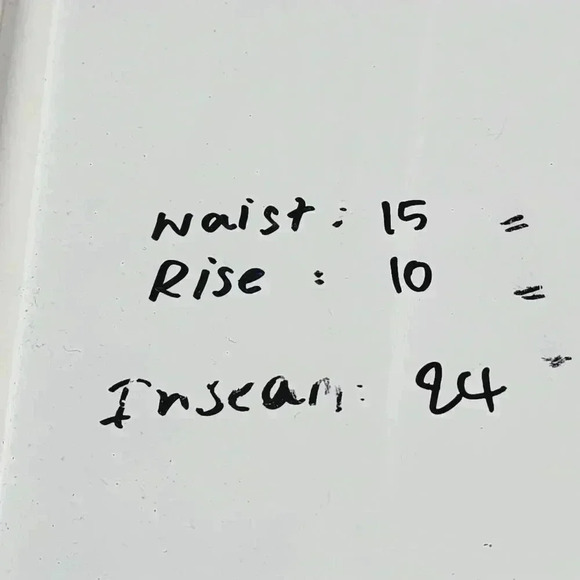 Waist: 15 =
Rise : 10 =
Inseam: 24 =